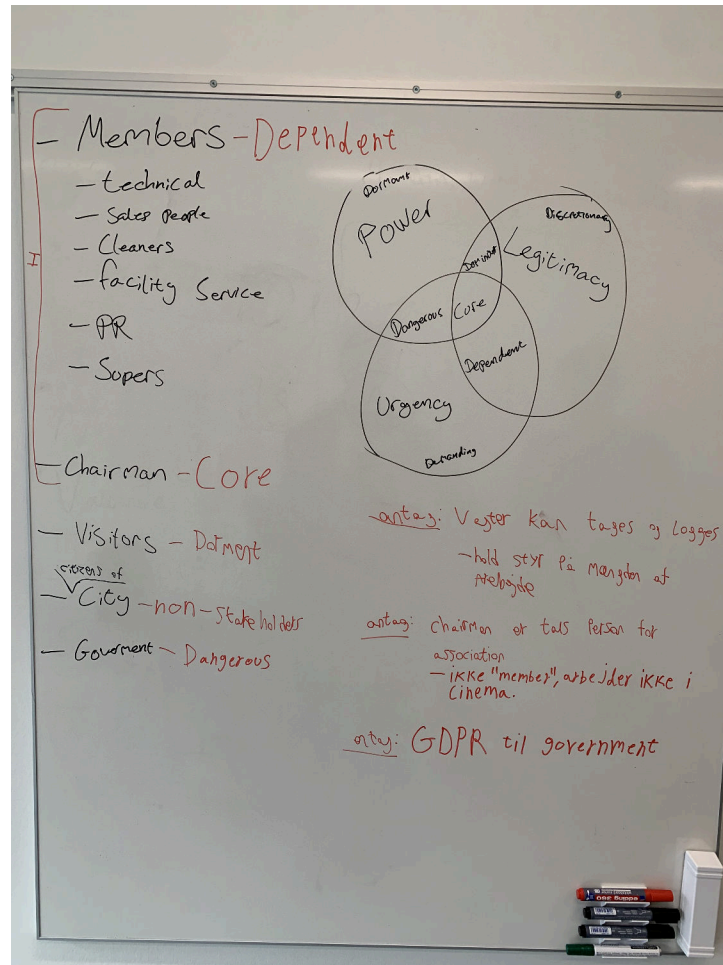 - Members - Dependent
- technical
- Sales People
- Cleaners
- facility Service
- PR
- Supers
I
- Chairman - Core
- Visitors - Dorment
citizens of
- City - non-stakeholders
- Gourment - Dangerous
Dormant
Power
Discretionary
Legitimacy
Dangerous
Core
Dependent
Urgency
Demanding
antag: Vagter kan tages og logges
- hold styr på mængden af
antag: chairman er tals Person for
association
- ikke "member", arbejder ikke i
Cinema.
antag: GDPR til government
edding 360